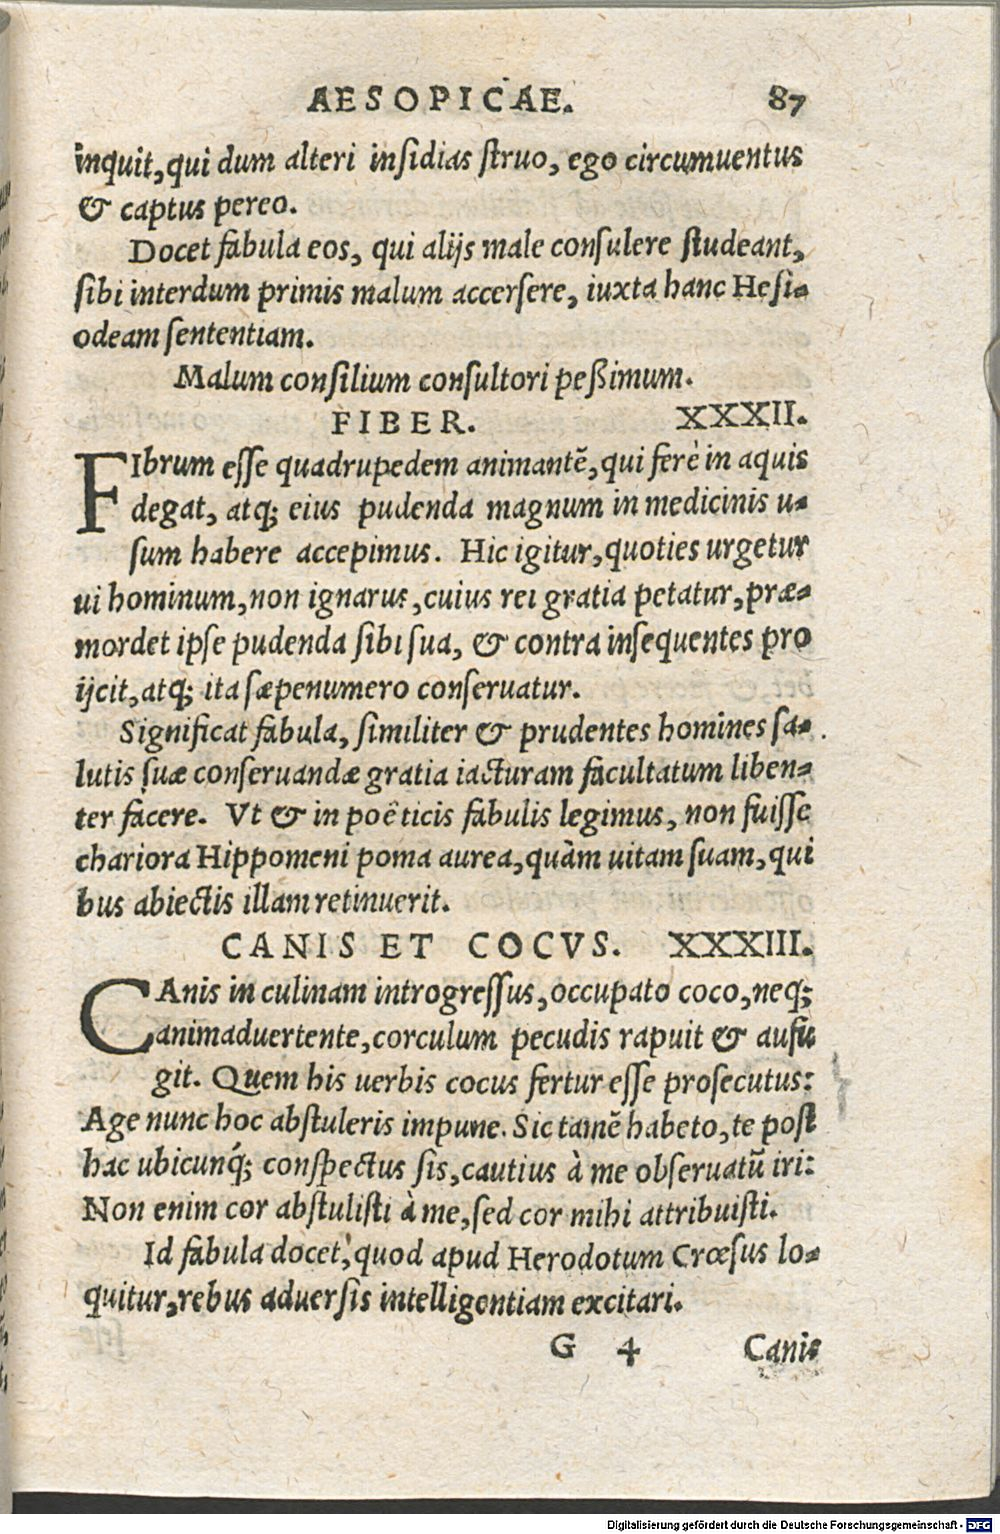 AESOPICAE. 87
inquit, qui dum alteri inſidias ſtruo, ego circumuentus
& captus pereo.
Docet fabula eos, qui alijs male conſulere ſtudeant,
ſibi interdum primis malum accerſere, iuxta hanc Heſi-
odeam ſententiam.
Malum conſilium conſultori peßimum.
FIBER. XXXII.
FIbrum eſſe quadrupedem animantẽ, qui ferè in aquis
degat, atq; eius pudenda magnum in medicinis u-
ſum habere accepimus. Hic igitur, quoties urgetur
ui hominum, non ignarus, cuius rei gratia petatur, præ-
mordet ipſe pudenda ſibi ſua, & contra inſequentes pro
ijcit, atq; ita ſæpenumero conſeruatur.
Significat fabula, ſimiliter & prudentes homines ſa-
lutis ſuæ conſeruandæ gratia iacturam facultatum liben-
ter facere. Vt & in poëticis fabulis legimus, non fuiſſe
chariora Hippomeni poma aurea, quàm uitam ſuam, qui
bus abiectis illam retinuerit.
CANIS ET COCVS. XXXIII.
CAnis in culinam introgreſſus, occupato coco, neq;
animaduertente, corculum pecudis rapuit & aufu
git. Quem his uerbis cocus fertur eſſe proſecutus:
Age nunc hoc abſtuleris impune. Sic tamẽ habeto, te poſt
hac ubicunq́; conſpectus ſis, cautius à me obſeruatũ iri:
Non enim cor abſtuliſti à me, ſed cor mihi attribuiſti.
Id fabula docet, quod apud Herodotum Crœſus lo-
quitur, rebus aduerſis intelligentiam excitari.
G 4 Canis
Digitalisierung gefördert durch die Deutsche Forschungsgemeinschaft - DFG